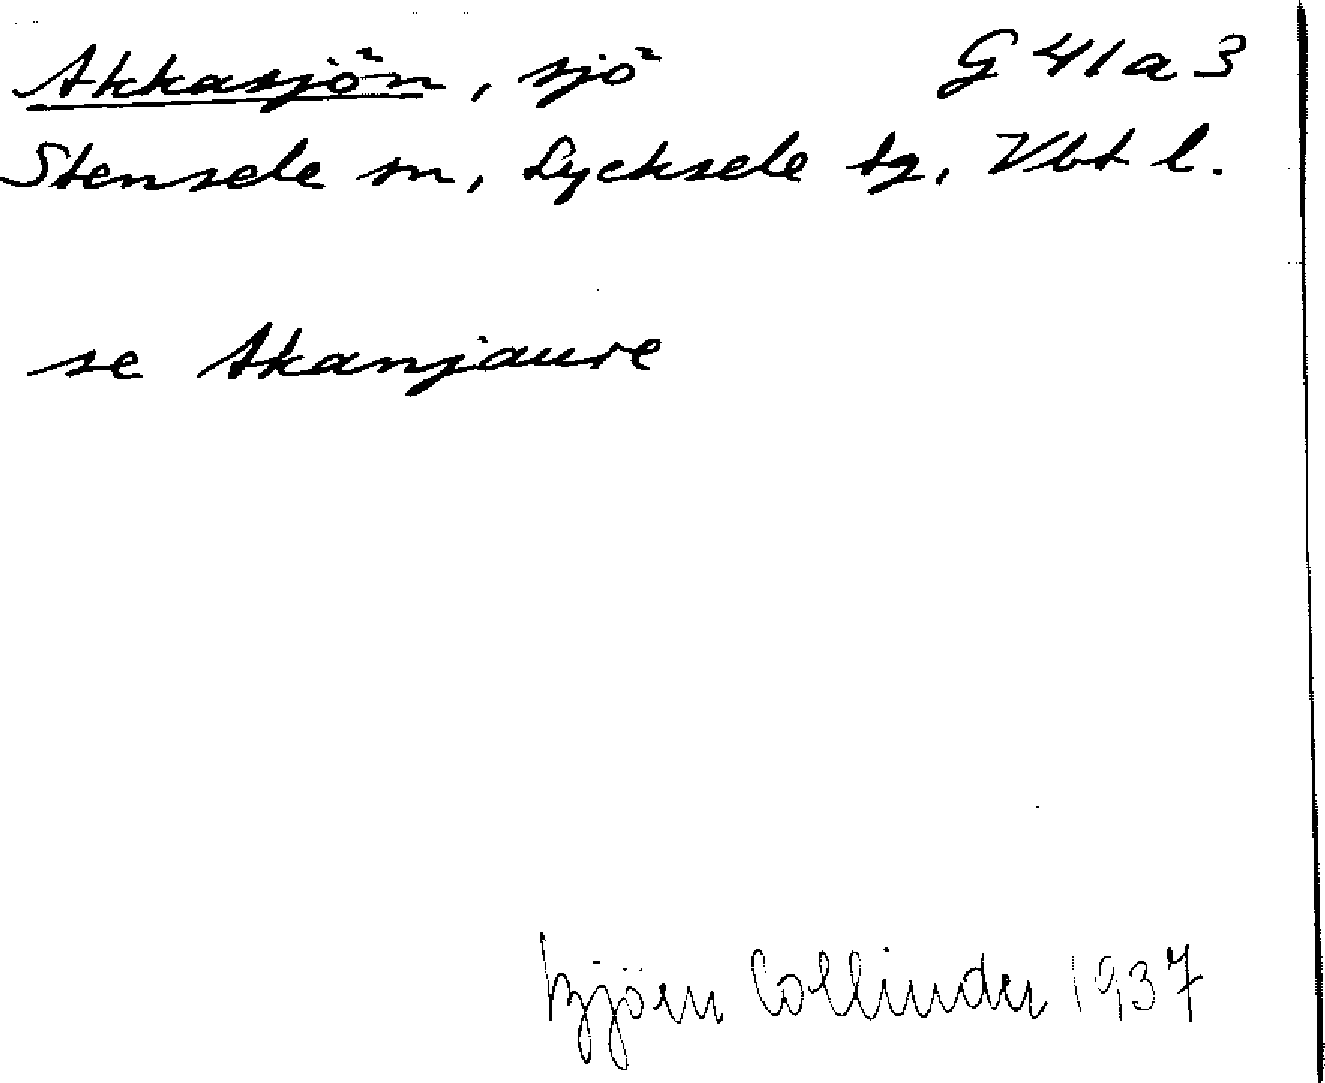 Akkasjön, sjö G 41 a 3
Stensele sn, Lycksele tg, Vbt l.
se Akanjaure
Björn Collinder 1937